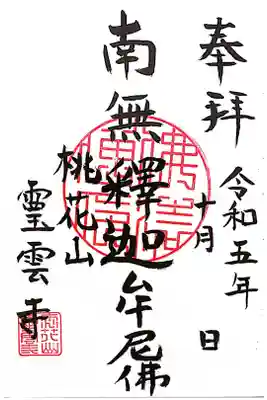 奉拝
令和五年十月 日
南無釋迦牟尼佛
桃花山
霊雲寺